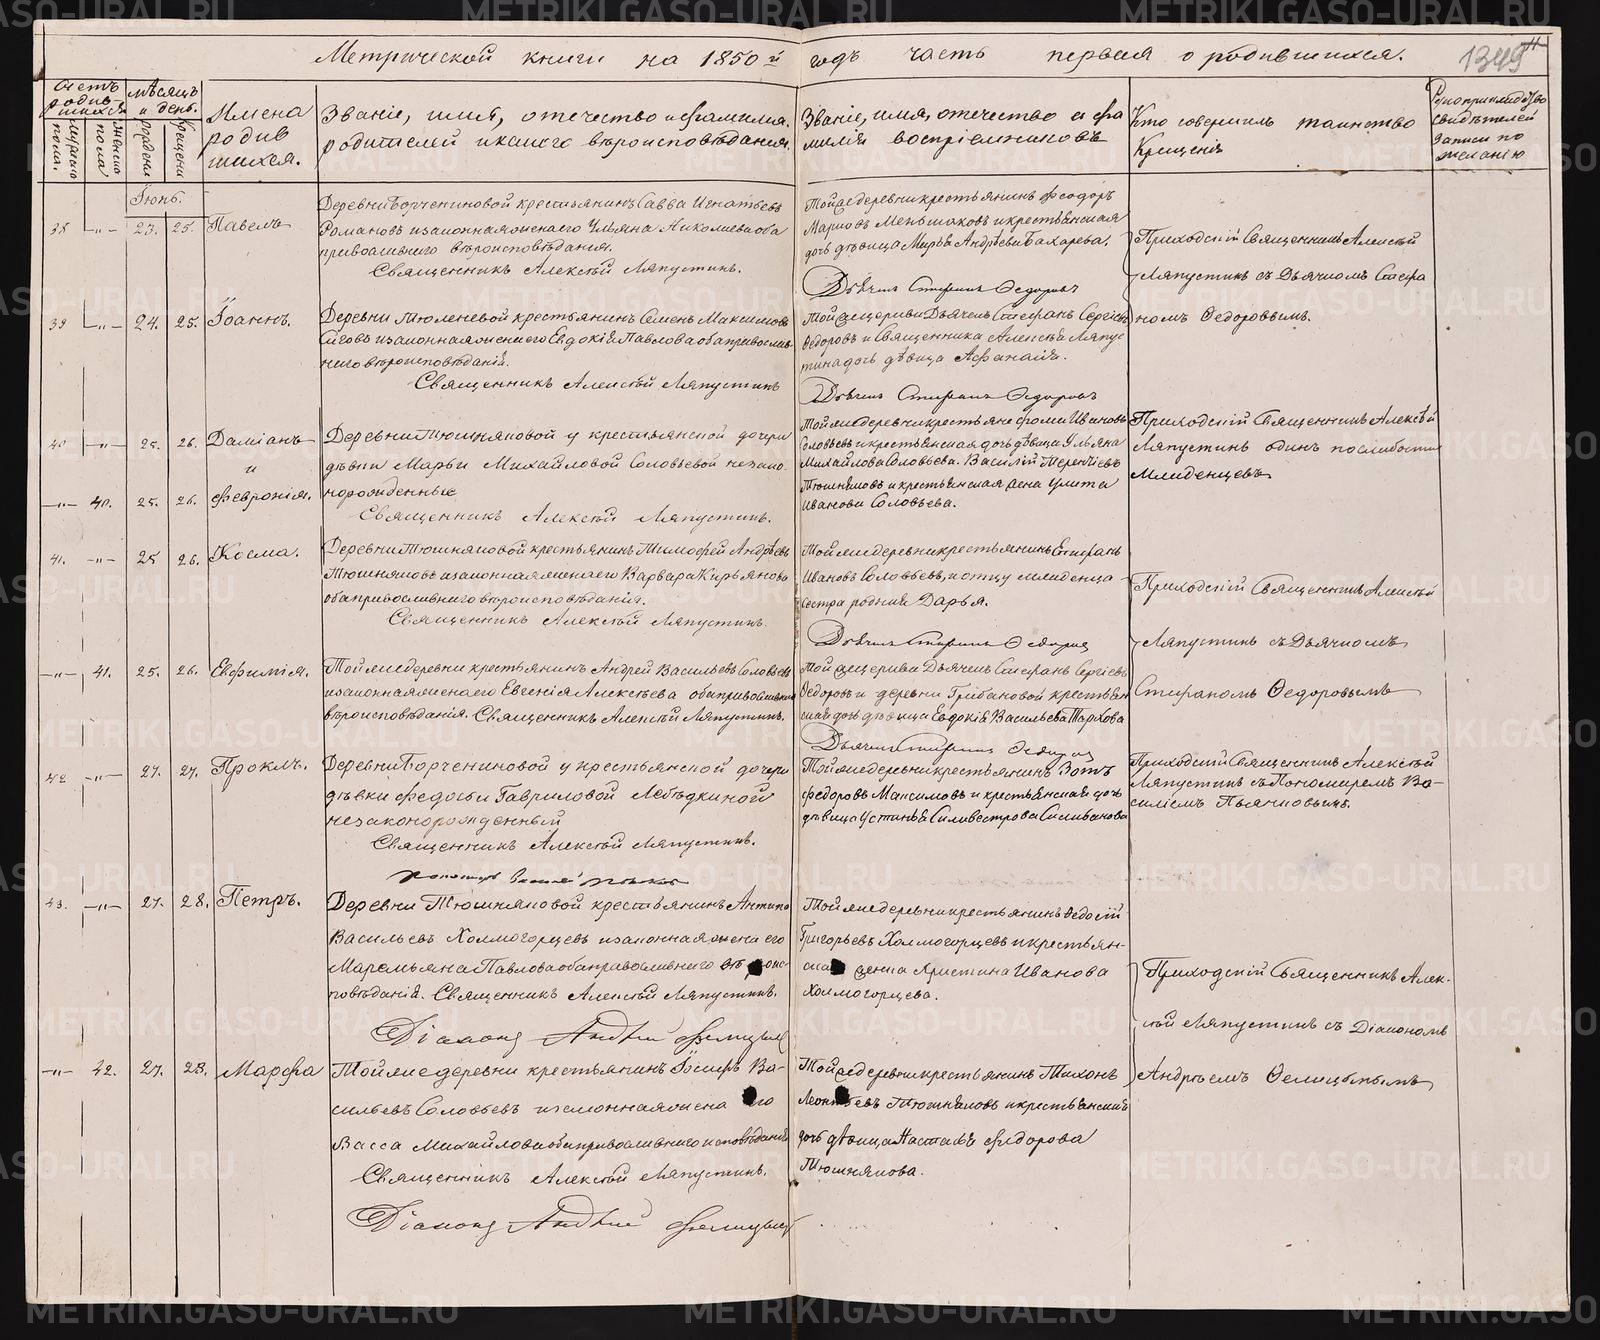 Метрической книги на 1850й годъ часть первая о родившихся.
1349
Счетъ родившихся
мужеска пола.
женска пола.
мѣсяцъ и день.
рожденія
крещенія
Имена родившихся.
Званіе, имя, отечество и фамилія родителей и какого вѣроисповѣданія.
Званіе, имя, отечество и фамилія воспріемниковъ
Кто совершилъ таинство Крещенія
Рукоприкладство свидѣтелей записи по желанію
Іюнь.
38 „ 23. 25. Павелъ
крестьянинъ Савва Игнатьевъ
Романовъ и законная жена его Ульяна Николаева оба
православнаго вѣроисповѣданія.
Священникъ Алексѣй Ляпустинъ.
Той же деревни крестьянинъ Феодоръ
Марковъ Меньшаковъ и крестьянская
дочь дѣвица Марья Андрѣева Бахарева.
Дьячекъ Стефанъ Федоровъ
Приходскій Священникъ Алексѣй
Ляпустинъ съ Дьячкомъ Стефа
номъ Федоровымъ.
39 „ 24. 25. Іоаннъ.
Деревни Тюленевой крестьянинъ Семенъ Максимовъ
и законная жена его Евдокія Павлова оба православ
наго вѣроисповѣданія.
Священникъ Алексѣй Ляпустинъ
Той же церкви Дьячекъ Стефанъ Сергѣевъ
Федоровъ и Священника Алексѣя Ляпус
тина дочь дѣвица Афанасія.
Дьячекъ Стефанъ Федоровъ
40 „ 25. 26. Даміанъ
и
„ 40. 25. 26. Февронія.
Деревни Тюшняковой у крестьянской дочери
дѣвки Марьи Михайловой Соловьевой незако
норожденные
Священникъ Алексѣй Ляпустинъ.
Той же деревни крестьяне Фома Ивановъ
Соловьевъ и крестьянская дочь дѣвица Ульяна
Михайлова Соловьева. Василій Терентіевъ
Тюшняковъ и крестьянская жена Улита
Иванова Соловьева.
Приходскій Священникъ Алексѣй
Ляпустинъ одинъ по слабости
младенцевъ
41. „ 25 26. Косма.
Деревни Тюшняковой крестьянинъ Тимофей Андрѣевъ
Тюшняковъ и законная жена его Варвара Кирьянова
оба православнаго вѣроисповѣданія.
Священникъ Алексѣй Ляпустинъ.
Той же деревни крестьянинъ Стефанъ
Ивановъ Соловьевъ, и отцу младенца
сестра родная Дарья.
Дьячекъ Стефанъ Федоровъ
Приходскій Священникъ Алексѣй
Ляпустинъ съ Дьячкомъ
Стефаномъ Федоровымъ
„ 41. 25. 26. Евфимія.
Той же деревни крестьянинъ Андрей Васильевъ Соловьевъ
и законная жена его Евгенія Алексѣева оба православнаго
вѣроисповѣданія. Священникъ Алексѣй Ляпустинъ.
Той же церкви Дьячекъ Стефанъ Сергѣевъ
Федоровъ и деревни Грибановой крестьян
ская дочь дѣвица Евдокія Васильева
Дьячекъ Стефанъ Федоровъ
42 „ 27. 27. Проклъ.
у крестьянской дочери
дѣвки Федосьи Гавриловой Лебѣдкиной
незаконорожденный
Священникъ Алексѣй Ляпустинъ.
Той же деревни крестьянинъ Зотъ
Федоровъ Максимовъ и крестьянская дочь
дѣвица Устинья Силивестрова Силиванова
Приходскій Священникъ Алексѣй
Ляпустинъ съ Пономаремъ Ва-
силіемъ Пьянковымъ.
43. „ 27. 28. Петръ.
Деревни Тюшняковой крестьянинъ Антипъ
Васильевъ Холмогорцевъ и законная жена его
Маремьяна Павлова оба православнаго вѣроис-
повѣданія. Священникъ Алексѣй Ляпустинъ.
Діаконъ Андрей
Той же деревни крестьянинъ Федосій
Григорьевъ Холмогорцевъ и крестьян-
ская женка Христина Иванова
Холмогорцева.
Приходскій Священникъ Алек-
сѣй Ляпустинъ съ Діакономъ
Андрѣемъ
„ 42. 27. 28. Марфа
Той же деревни крестьянинъ Іосифъ Ва-
сильевъ Соловьевъ и законная жена его
Васса Михайлова оба православнаго исповѣданія
Священникъ Алексѣй Ляпустинъ.
Діаконъ Андрей
Той же деревни крестьянинъ Тихонъ
Леонтьевъ Тюшняковъ и крестьянская
дочь дѣвица Настасья Федорова
Тюшнякова.
METRIKI.GASO-URAL.RU